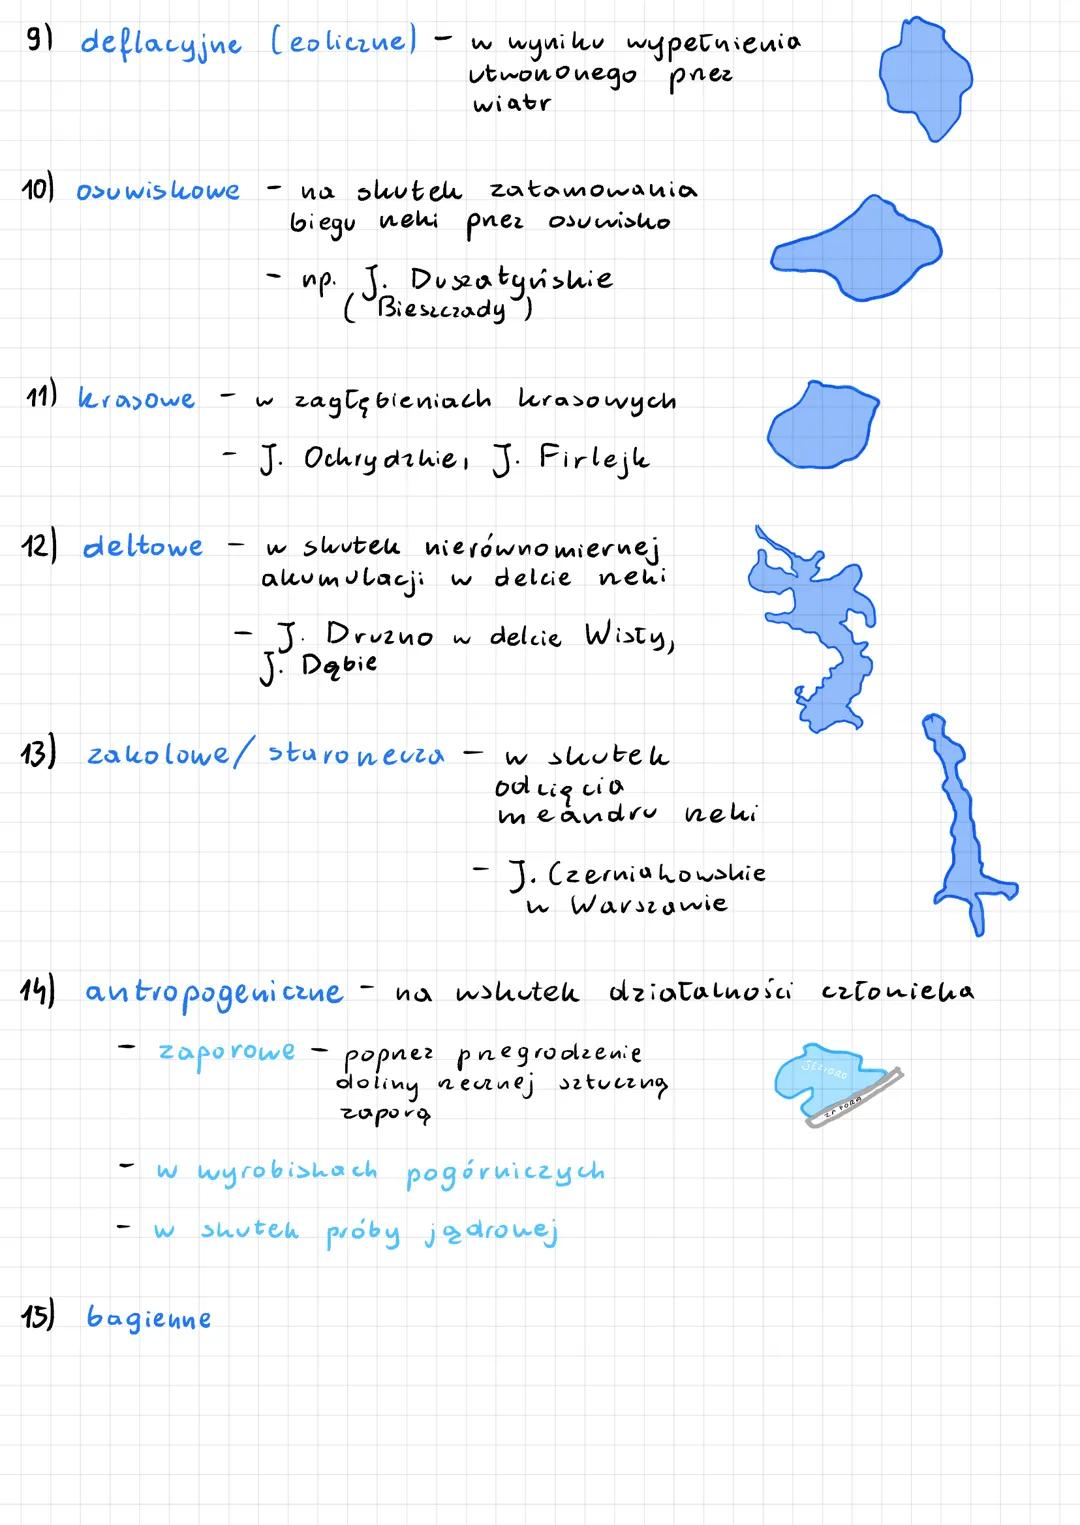 9) deflacyjne (eoliczne) - w wyniku wypełnienia
utworzonego przez
wiatr
10) osuwiskowe - na skutek zatamowania
biegu rzeki przez osuwisko
- np. J. Duszatyńskie
(Bieszczady)
11) krasowe - w zagłębieniach krasowych
- J. Ochrydzkie, J. Firlejk
12) deltowe - w skutek nierównomiernej
akumulacji w delcie rzeki
- J. Druzno w delcie Wisły,
J. Dąbie
13) zakolowe/starorzecza - w skutek
odcięcia
meandru rzeki
- J. Czerniakowskie
w Warszawie
14) antropogeniczne - na wskutek działalności człowieka
- zaporowe - poprzez przegrodzenie
doliny rzecznej sztuczną
zaporą
JEZIORO
ZAPORA
- w wyrobiskach pogórniczych
- w skutek próby jądrowej
15) bagienne